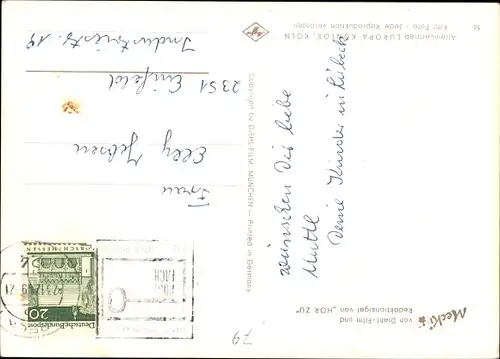 Mecki
von Diehl-Film und
Redaktionsigel von „HÖR ZU"
wünschen Dir liebe
Mutti
Deine Kinder in Lübeck
Alleinvertrieb EUROPA KONTOR, KÖLN
Echt Foto - Jede Reproduktion verboten
Copyright by DIEHL-FILM, MÜNCHEN — Printed in Germany
20
Deutsche Bundespost
Frau
Elly Jebsen
2351 Einfeld
Industriestr. 19
79